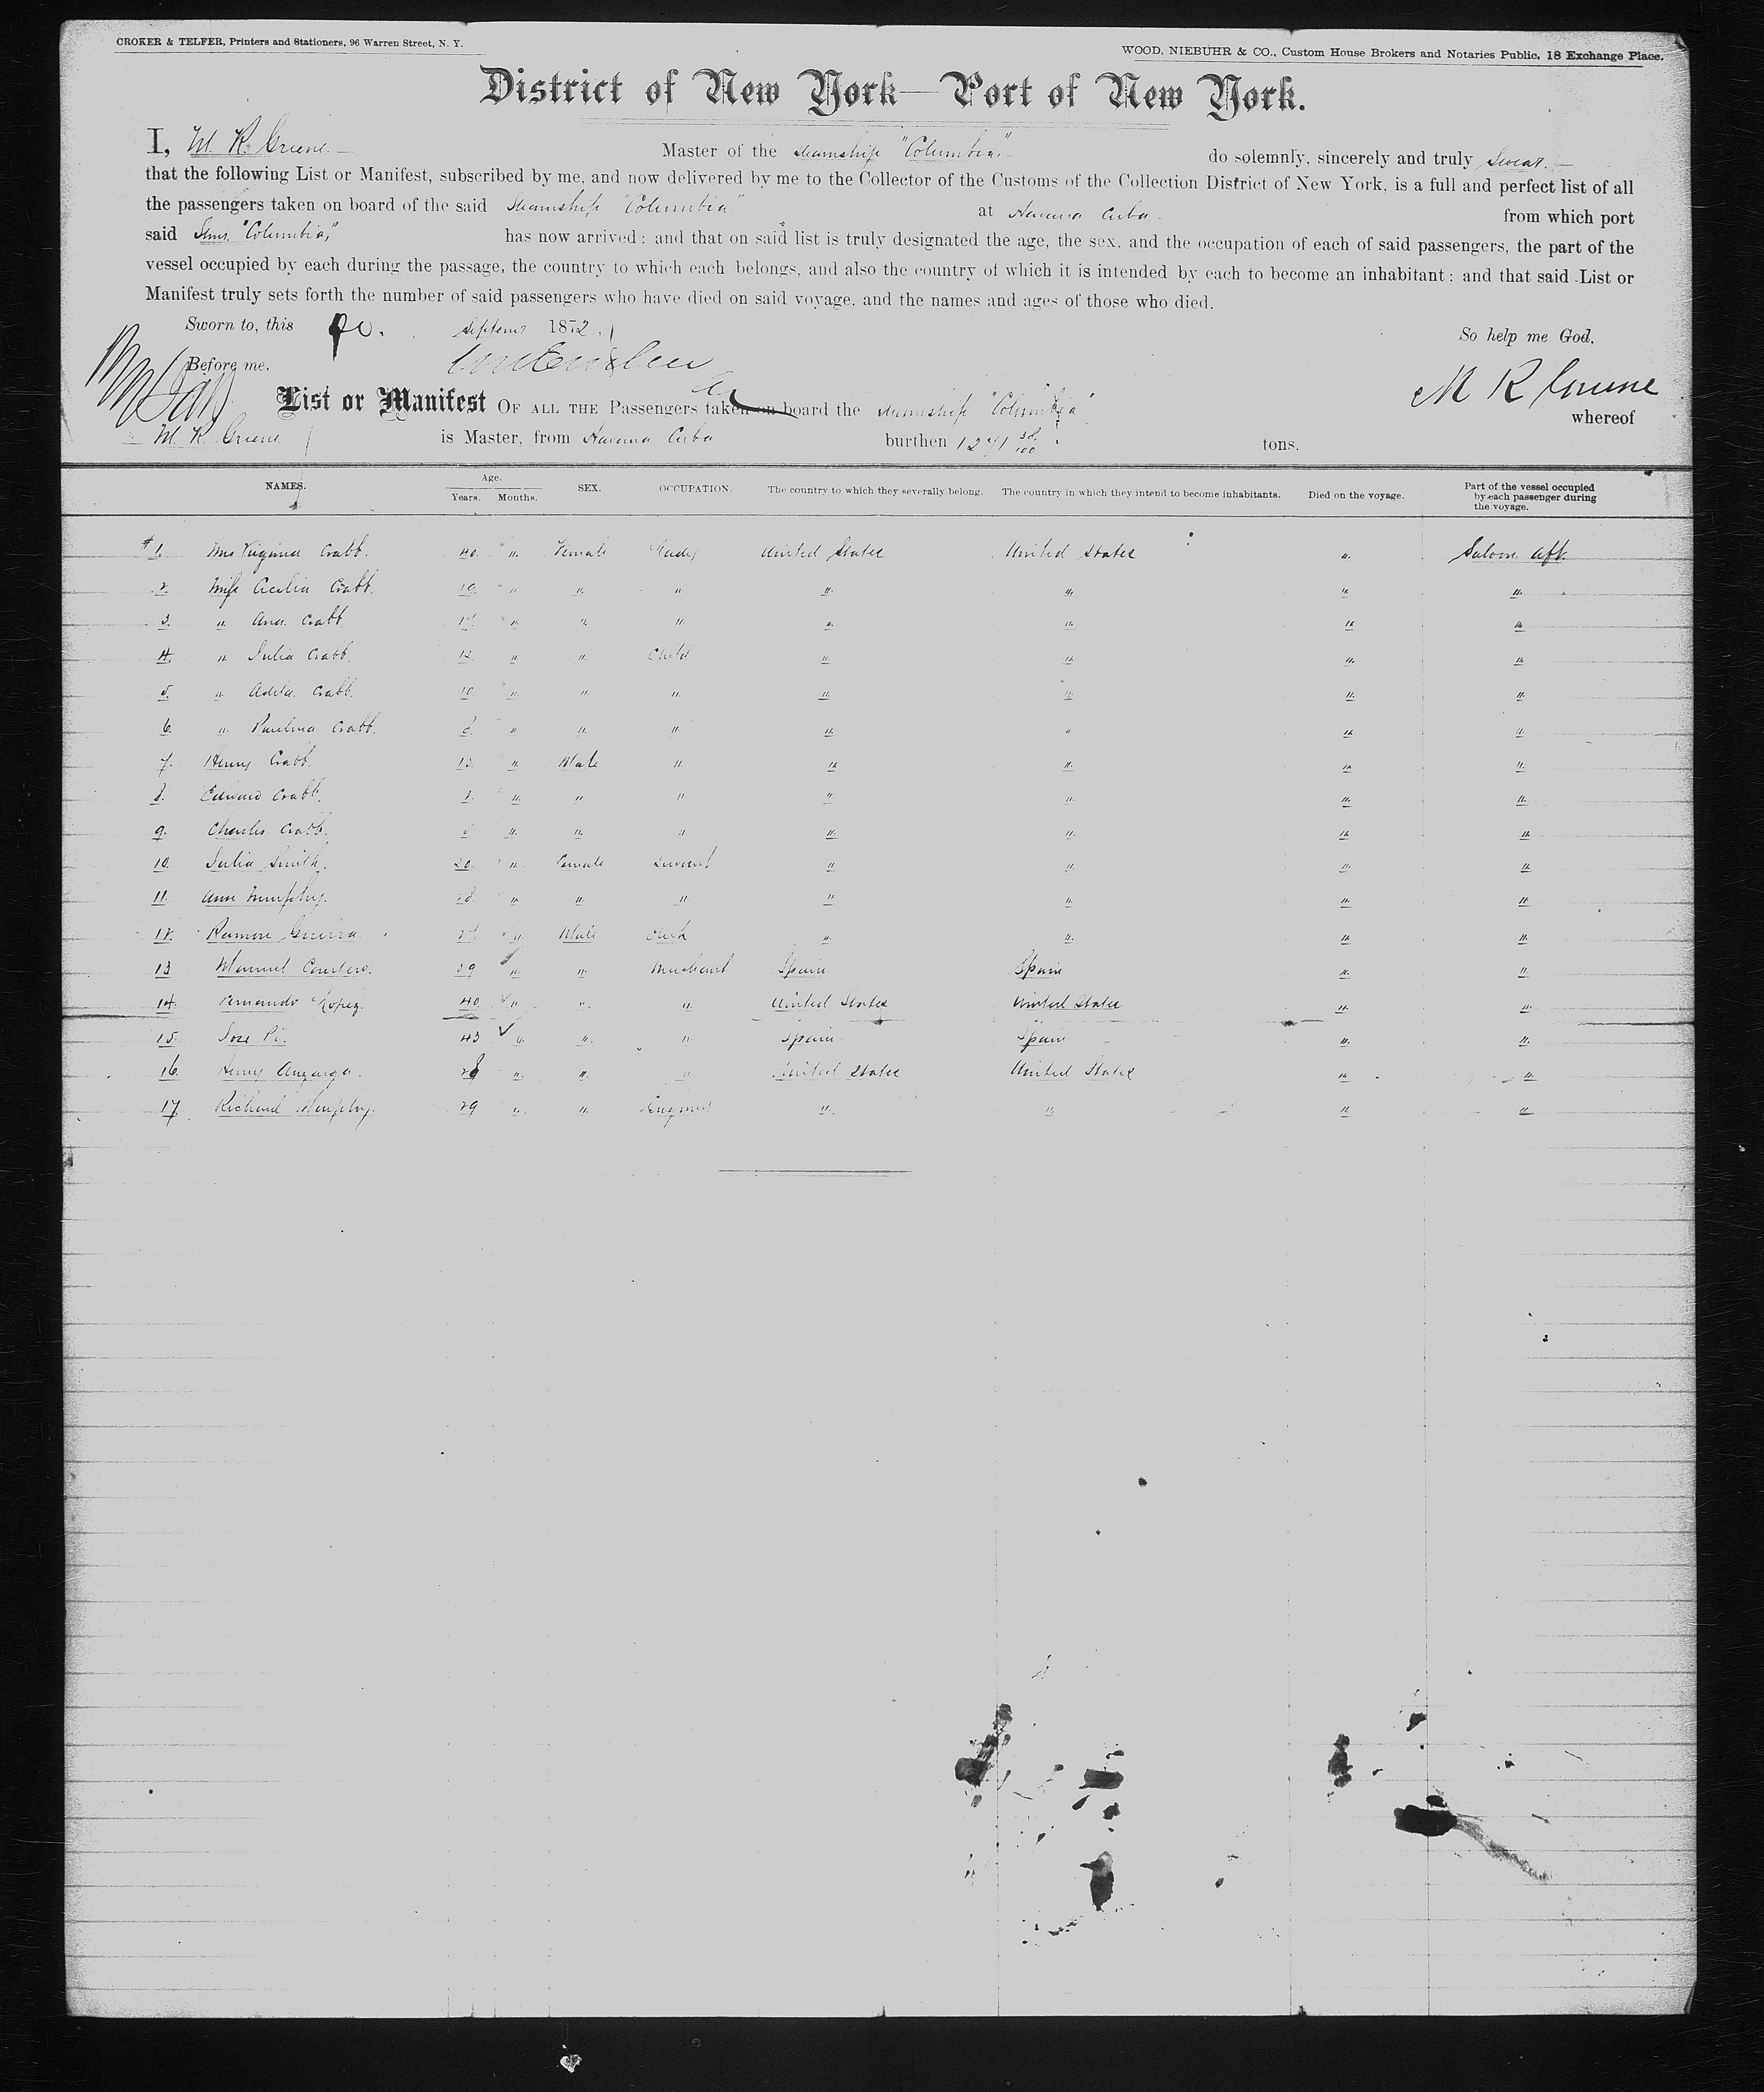 CROKER & TELFER, Printers and Stationers, 96 Warren Street, N. Y.
WOOD, NIEBUHR & CO., Custom House Brokers and Notaries Public, 18 Exchange Place.
District of New York—Port of New York.
I, M. R. Greene. Master of the Steamship "Columbia" do solemnly, sincerely and truly Swear.
that the following List or Manifest, subscribed by me, and now delivered by me to the Collector of the Customs of the Collection District of New York, is a full and perfect list of all
the passengers taken on board of the said Steamship "Columbia" at Havana Cuba from which port
said Stmr "Columbia" has now arrived: and that on said list is truly designated the age, the sex, and the occupation of each of said passengers, the part of the
vessel occupied by each during the passage, the country to which each belongs, and also the country of which it is intended by each to become an inhabitant; and that said List or
Manifest truly sets forth the number of said passengers who have died on said voyage, and the names and ages of those who died.
Sworn to, this Septemr 1872. So help me God.
Before me.
M R Greene
List or Manifest OF ALL THE Passengers taken on board the Steamship "Columbia" whereof
M. R. Greene is Master, from Havana Cuba burthen 1271 38/100 tons.
NAMES. Age. Years. Months. SEX. OCCUPATION. The country to which they severally belong. The country in which they intend to become inhabitants. Died on the voyage. Part of the vessel occupied by each passenger during the voyage.
#1. Mrs Virginia Crabb. 40. " Female Lady United States United States " Saloon aft.
2. Miss Cecilia Crabb. 19. " " " " " " "
3. " Ana. Crabb " " " " " " "
4. " Julia Crabb. 12. " " Child " " " "
5. " Adela. Crabb. 10 " " " " " " "
6. " Paulina Crabb. " " " " " " "
7. Henry Crabb. 13. " Male " " " " "
8. Edward Crabb. " " " " " " "
9. Charles Crabb. " " " " " " "
10. Julia Smith. 20. " Female Servant " " " "
11. Ann Murphy. 28. " " " " " " "
12. Ramon Guerra. " Male Clerk " " " "
13 Manuel 39 " " Merchant Spain Spain " "
14. Fernando Lopez. 40. " " " United States United States " "
15. Jose Pi. 43 " " " Spain Spain " "
16. Henry 28 " " " United States United States " "
17. Richard Murphy. 29 " " Engineer " " " "